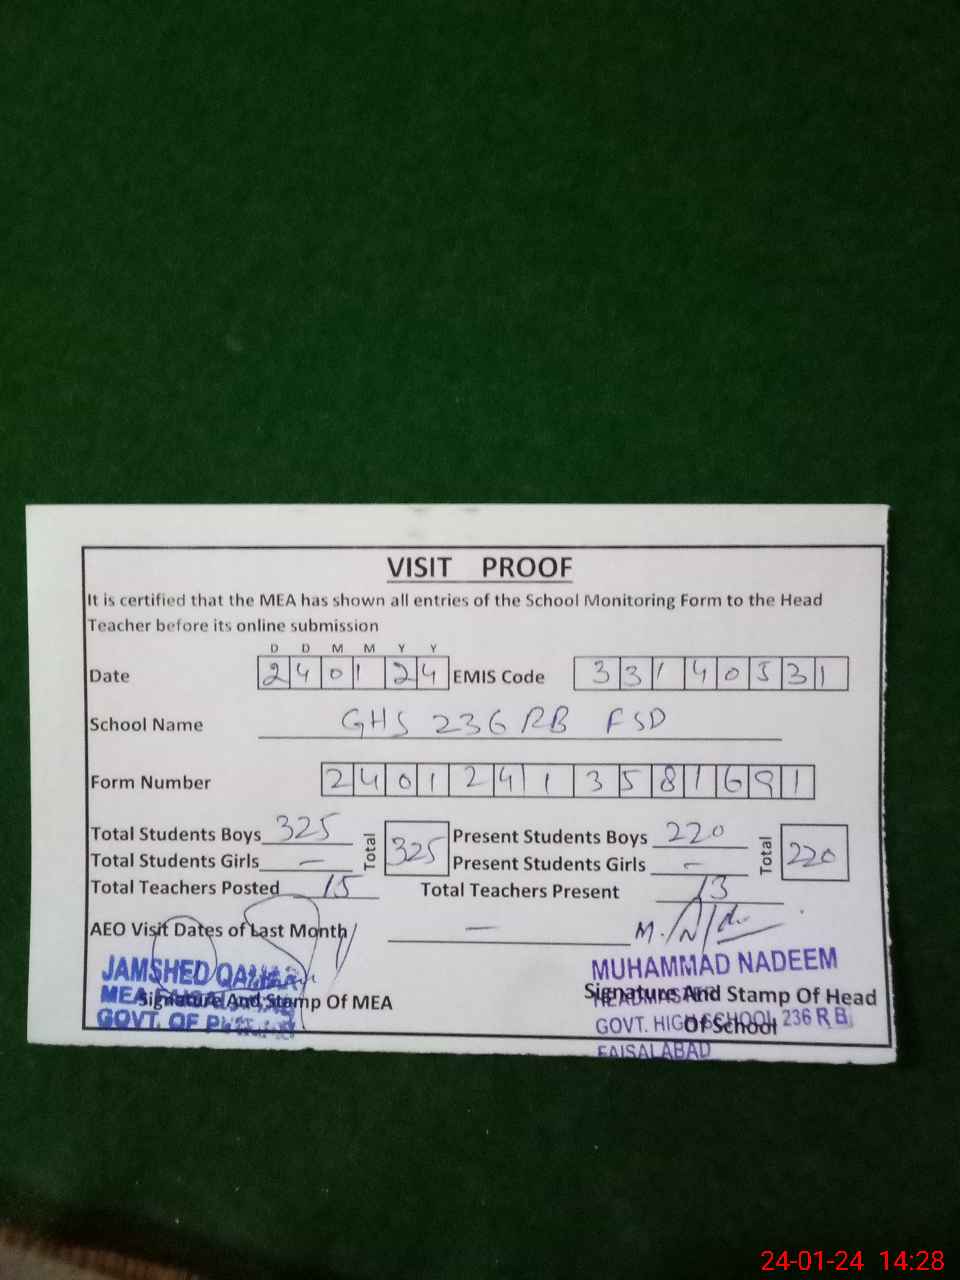 VISIT PROOF
It is certified that the MEA has shown all entries of the School Monitoring Form to the Head
Teacher before its online submission
D D M M Y Y
Date 240124 EMIS Code 33140531
School Name GHS 236 RB FSD
Form Number 240124113581691
Total Students Boys 325 Total 325 Present Students Boys 220 Total 220
Total Students Girls — Present Students Girls —
Total Teachers Posted 15 Total Teachers Present 13
AEO Visit Dates of Last Month —
JAMSHED
MEA
GOVT. OF
Signature And Stamp Of MEA
MUHAMMAD NADEEM
HEADMASTER
GOVT. HIGH SCHOOL 236 RB
FAISALABAD
Signature And Stamp Of Head
Of School
24-01-24 14:28